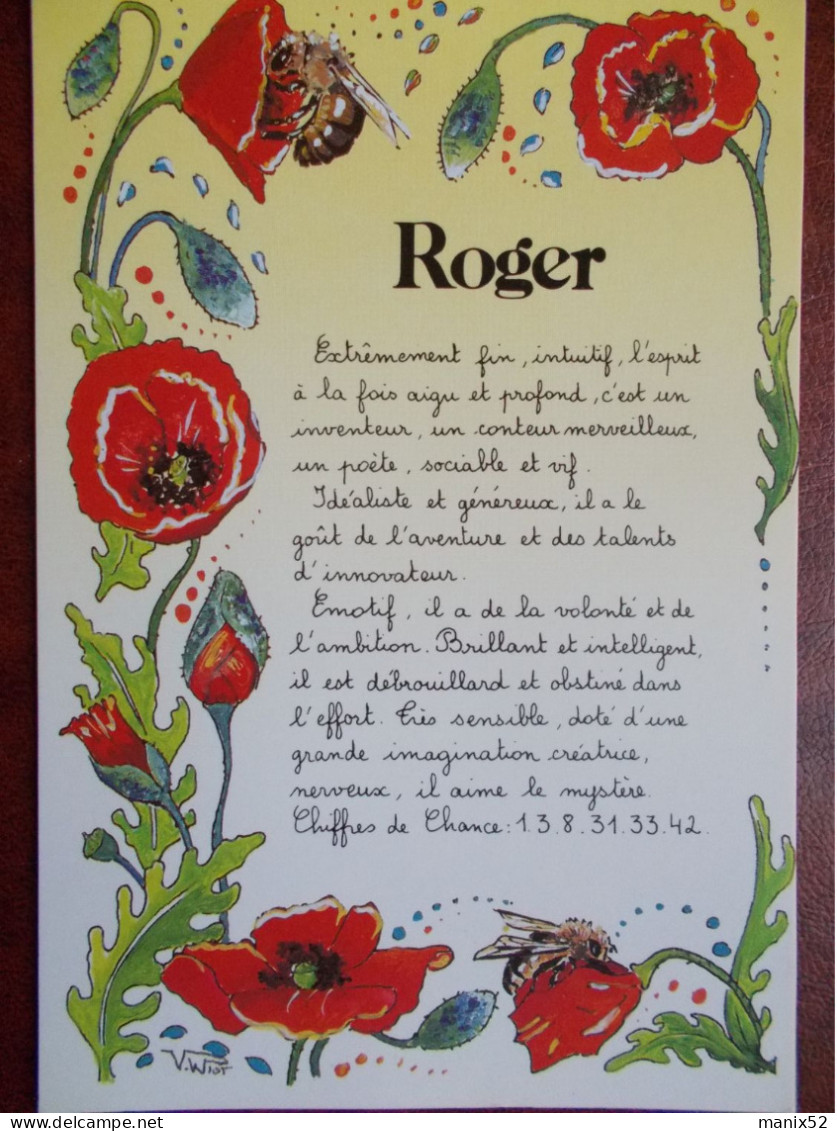 Roger
Extrêmement fin, intuitif, l'esprit
à la fois aigu et profond, c'est un
inventeur, un conteur merveilleux,
un poète, sociable et vif.
Idéaliste et généreux, il a le
goût de l'aventure et des talents
d'innovateur.
Emotif, il a de la volonté et de
l'ambition. Brillant et intelligent,
il est débrouillard et obstiné dans
l'effort. Très sensible, doté d'une
grande imagination créatrice,
nerveux, il aime le mystère.
Chiffres de Chance: 1.3.8.31.33.42.
V. Wiot
delcampe.net
manix52